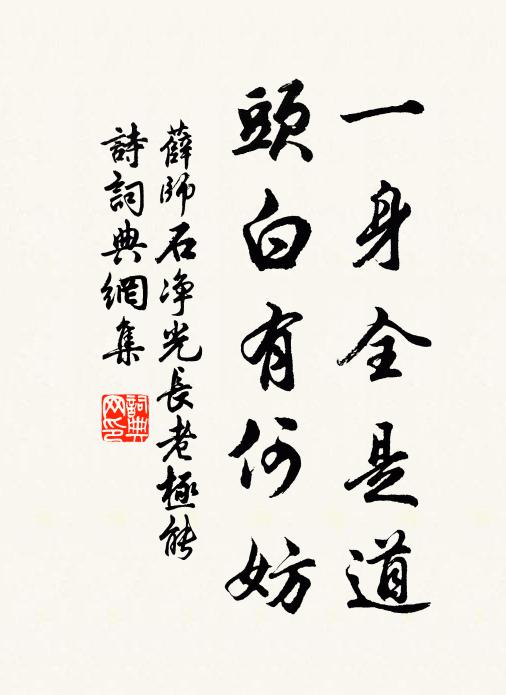 一身全是道
頭白有何妨
薛師石净光長老極能
詩詞典網集
詞典网印